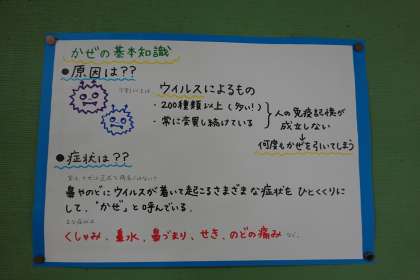 かぜの基本知識
●原因は??
ウイルスによるもの
・200種類以上(多い!)
・常に変異し続けている
人の免疫記憶が
成立しない
↓
何度もかぜを引いてしまう
●症状は??
鼻やのどにウイルスが着いて起こるさまざまな症状をひとくくりに
して、"かぜ"と呼んでいる。
くしゃみ、鼻水、鼻づまり、せき、のどの痛み など。